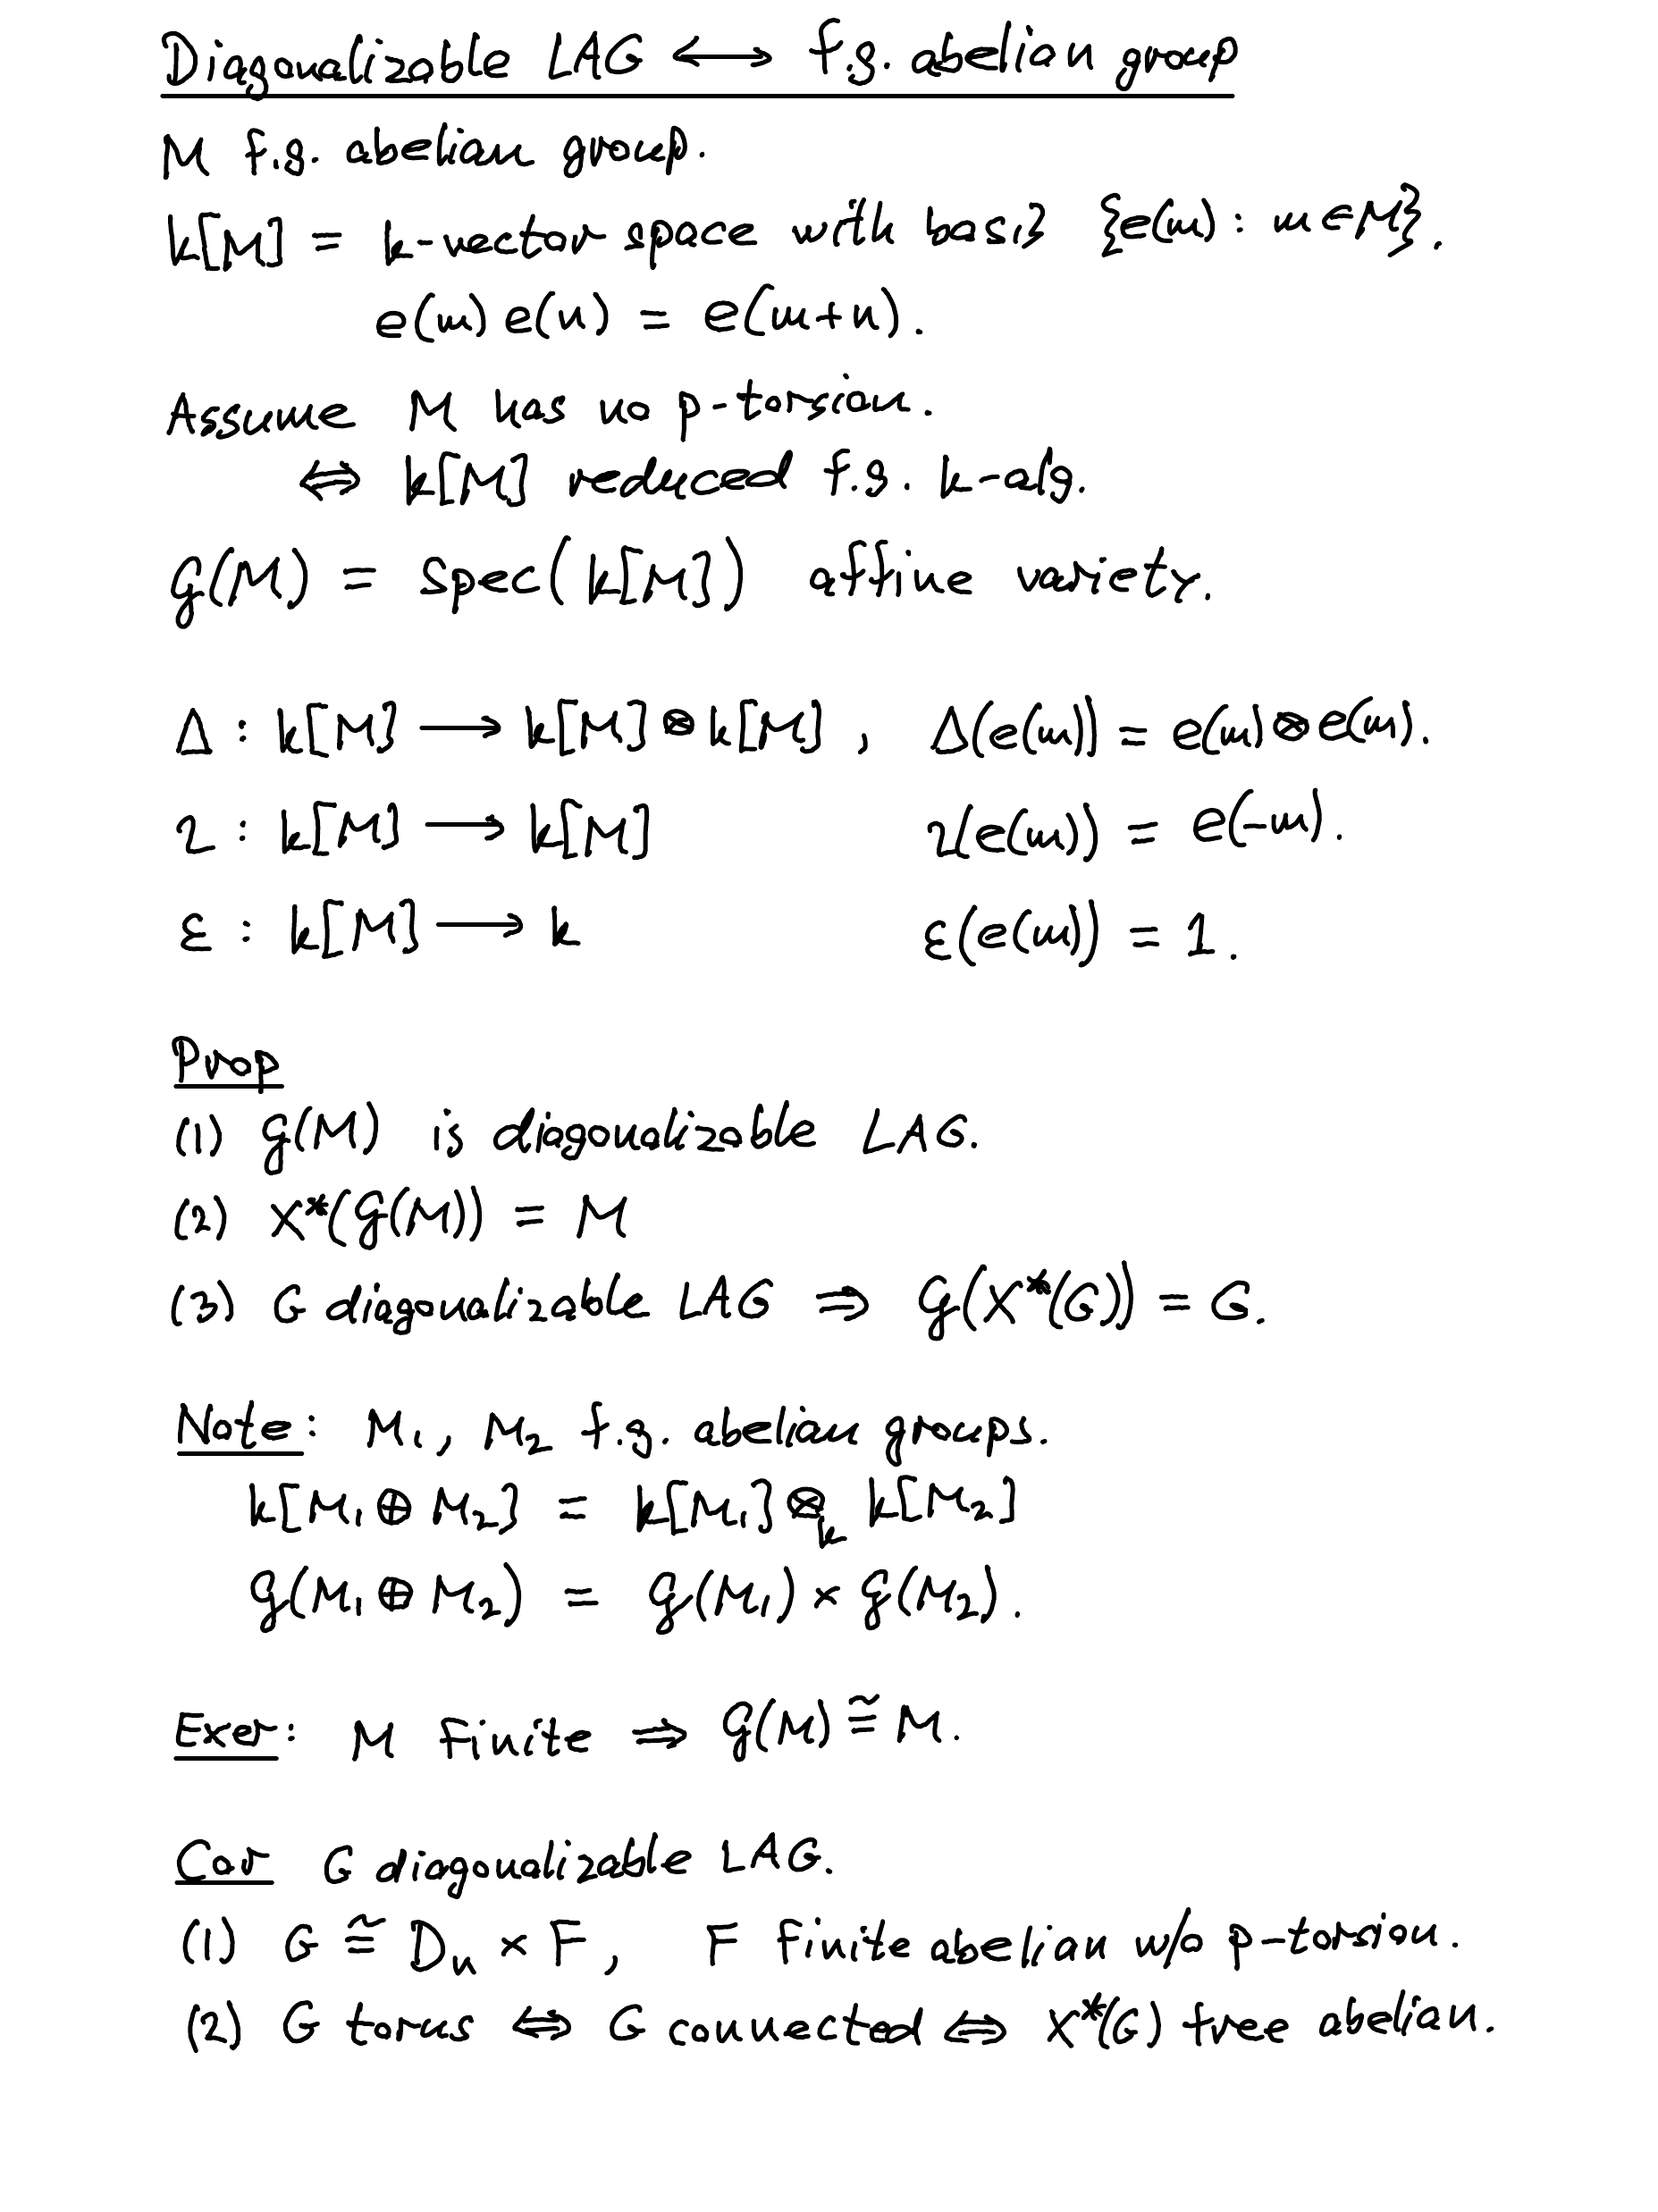 Diagonalizable LAG ⟷ f.g. abelian group
M f.g. abelian group.
k[M] = k-vector space with basis {e(m) : m ∈ M}.
e(m) e(n) = e(m+n).
Assume M has no p-torsion.
⇔ k[M] reduced f.g. k-alg.
𝒢(M) = Spec(k[M]) affine variety.
Δ : k[M] ⟶ k[M] ⊗ k[M] , Δ(e(m)) = e(m) ⊗ e(m).
ι : k[M] ⟶ k[M] ι(e(m)) = e(-m).
ε : k[M] ⟶ k ε(e(m)) = 1.
Prop
(1) 𝒢(M) is diagonalizable LAG.
(2) X*(𝒢(M)) = M
(3) G diagonalizable LAG ⇒ 𝒢(X*(G)) = G.
Note: M₁, M₂ f.g. abelian groups.
k[M₁ ⊕ M₂] = k[M₁] ⊗ₖ k[M₂]
𝒢(M₁ ⊕ M₂) = 𝒢(M₁) × 𝒢(M₂).
Exer: M finite ⇒ 𝒢(M) ≅ M.
Cor G diagonalizable LAG.
(1) G ≅ Dₙ × F, F finite abelian w/o p-torsion.
(2) G torus ⇔ G connected ⇔ X*(G) free abelian.